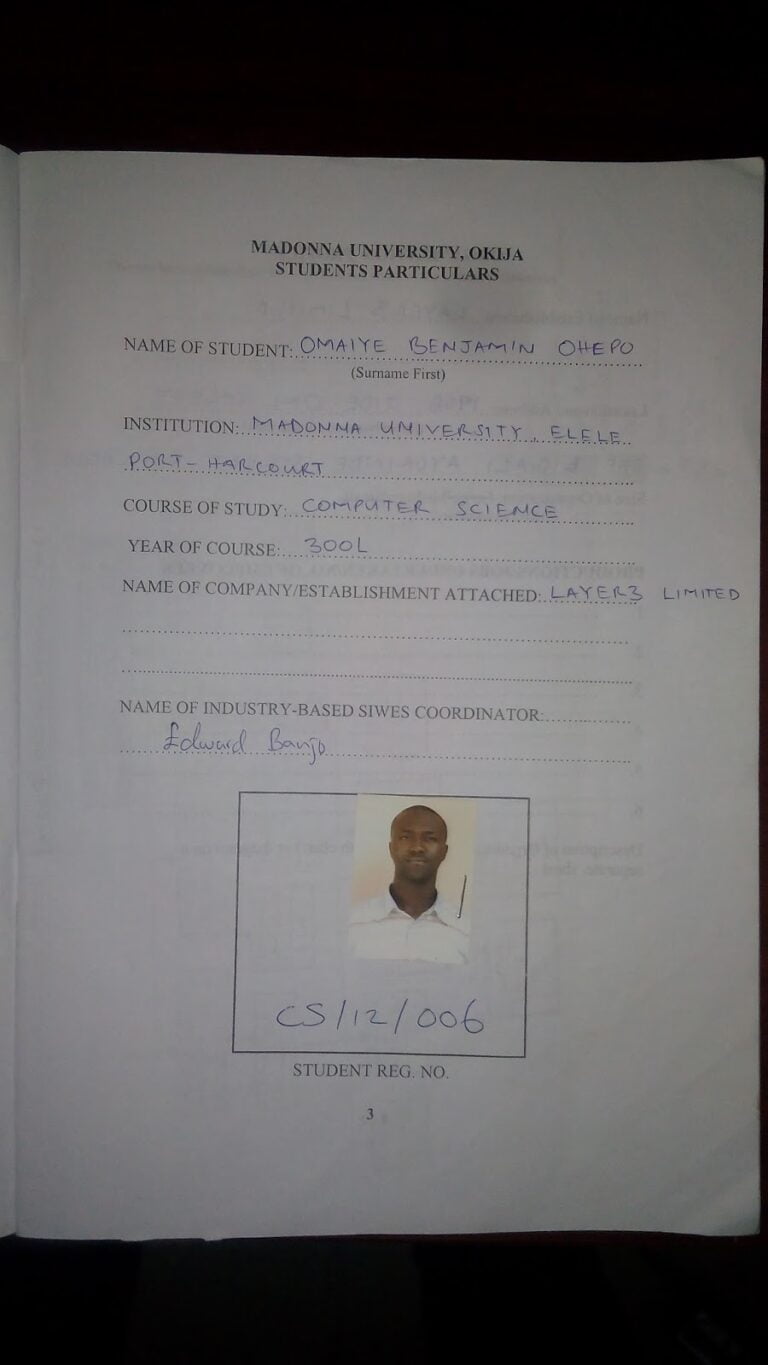 MADONNA UNIVERSITY, OKIJA
STUDENTS PARTICULARS
NAME OF STUDENT: OMAIYE BENJAMIN OHEPO
(Surname First)
INSTITUTION: MADONNA UNIVERSITY, ELELE
PORT-HARCOURT
COURSE OF STUDY: COMPUTER SCIENCE
YEAR OF COURSE: 300L
NAME OF COMPANY/ESTABLISHMENT ATTACHED: LAYER3 LIMITED
NAME OF INDUSTRY-BASED SIWES COORDINATOR:
Edward Banjo
CS/12/006
STUDENT REG. NO.
3